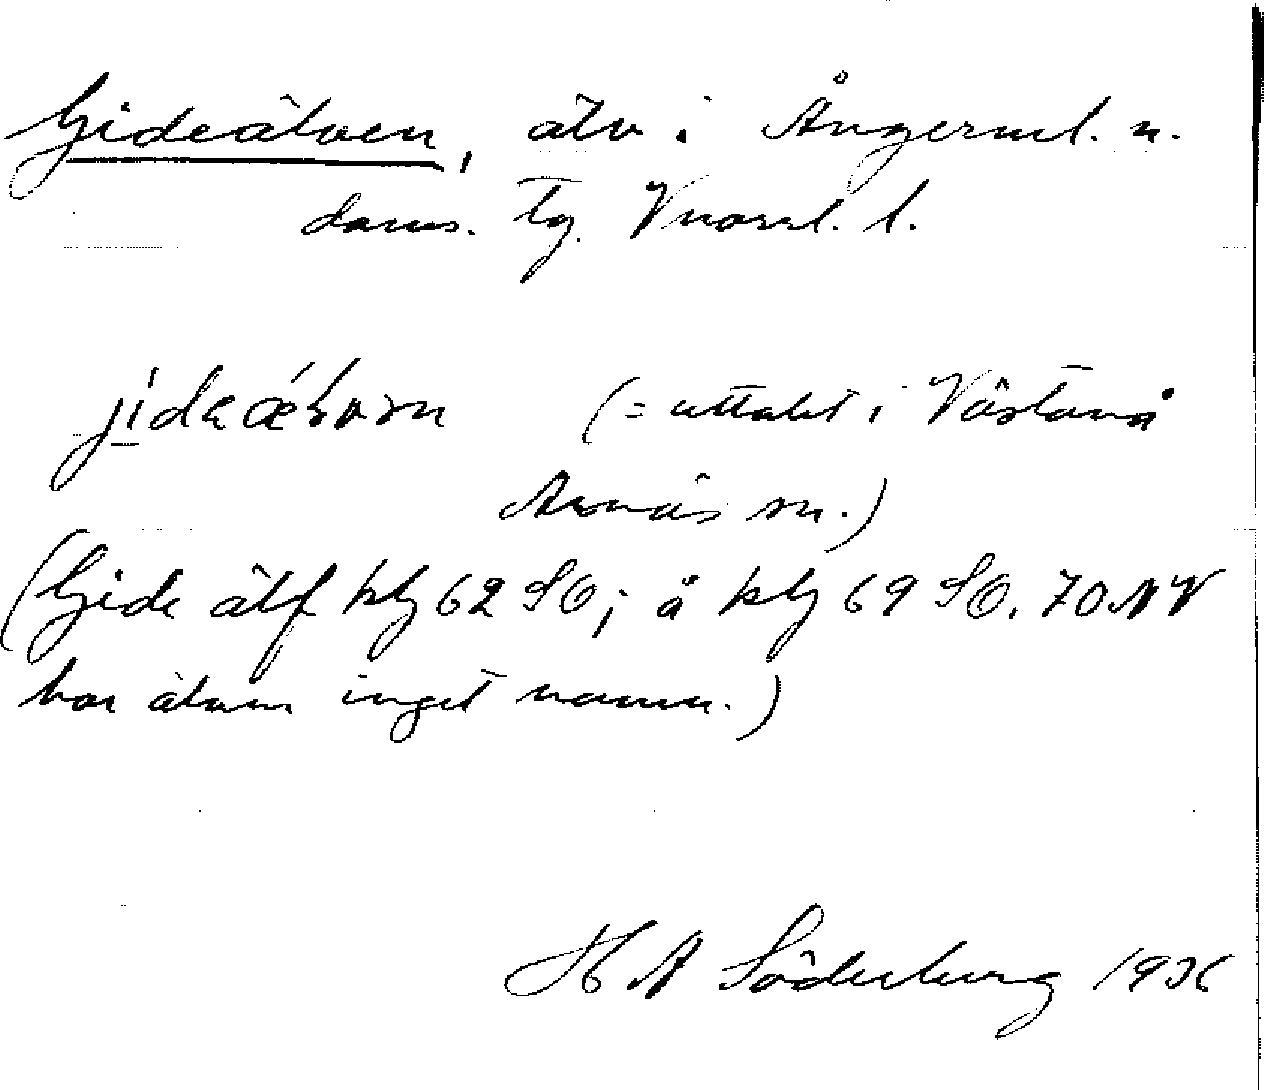 Gideälven, älv i Ångerml. n.
doms. tg. Vnorrl. l.
(= uttalet i Västanå
Arnäs sn.)
(Gide älf kbl 62 SO; å kbl 69 SO. 70 NV
har älven inget namn.)
H A Söderberg 1936